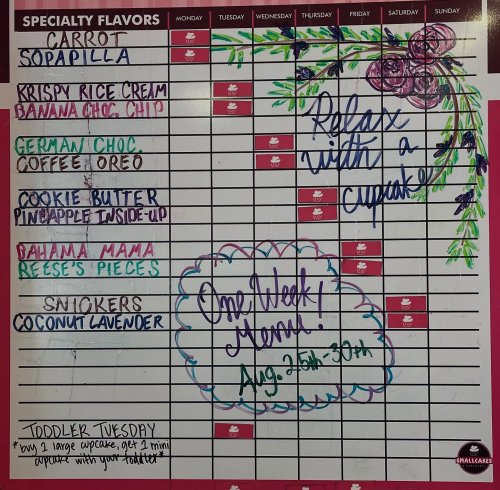 SPECIALTY FLAVORS MONDAY TUESDAY WEDNESDAY THURSDAY FRIDAY SATURDAY SUNDAY
CARROT
SOPAPILLA
KRISPY RICE CREAM
BANANA CHOC. CHIP
GERMAN CHOC.
COFFEE OREO
COOKIE BUTTER
PINEAPPLE INSIDE-UP
BAHAMA MAMA
REESE'S PIECES
SNICKERS
COCONUT LAVENDER
Relax
with a
cupcake
One Week
Menu!
Aug. 25th-30th
TODDLER TUESDAY
*buy 1 large cupcake, get 1 mini
cupcake with your toddler*
SMALLCAKES